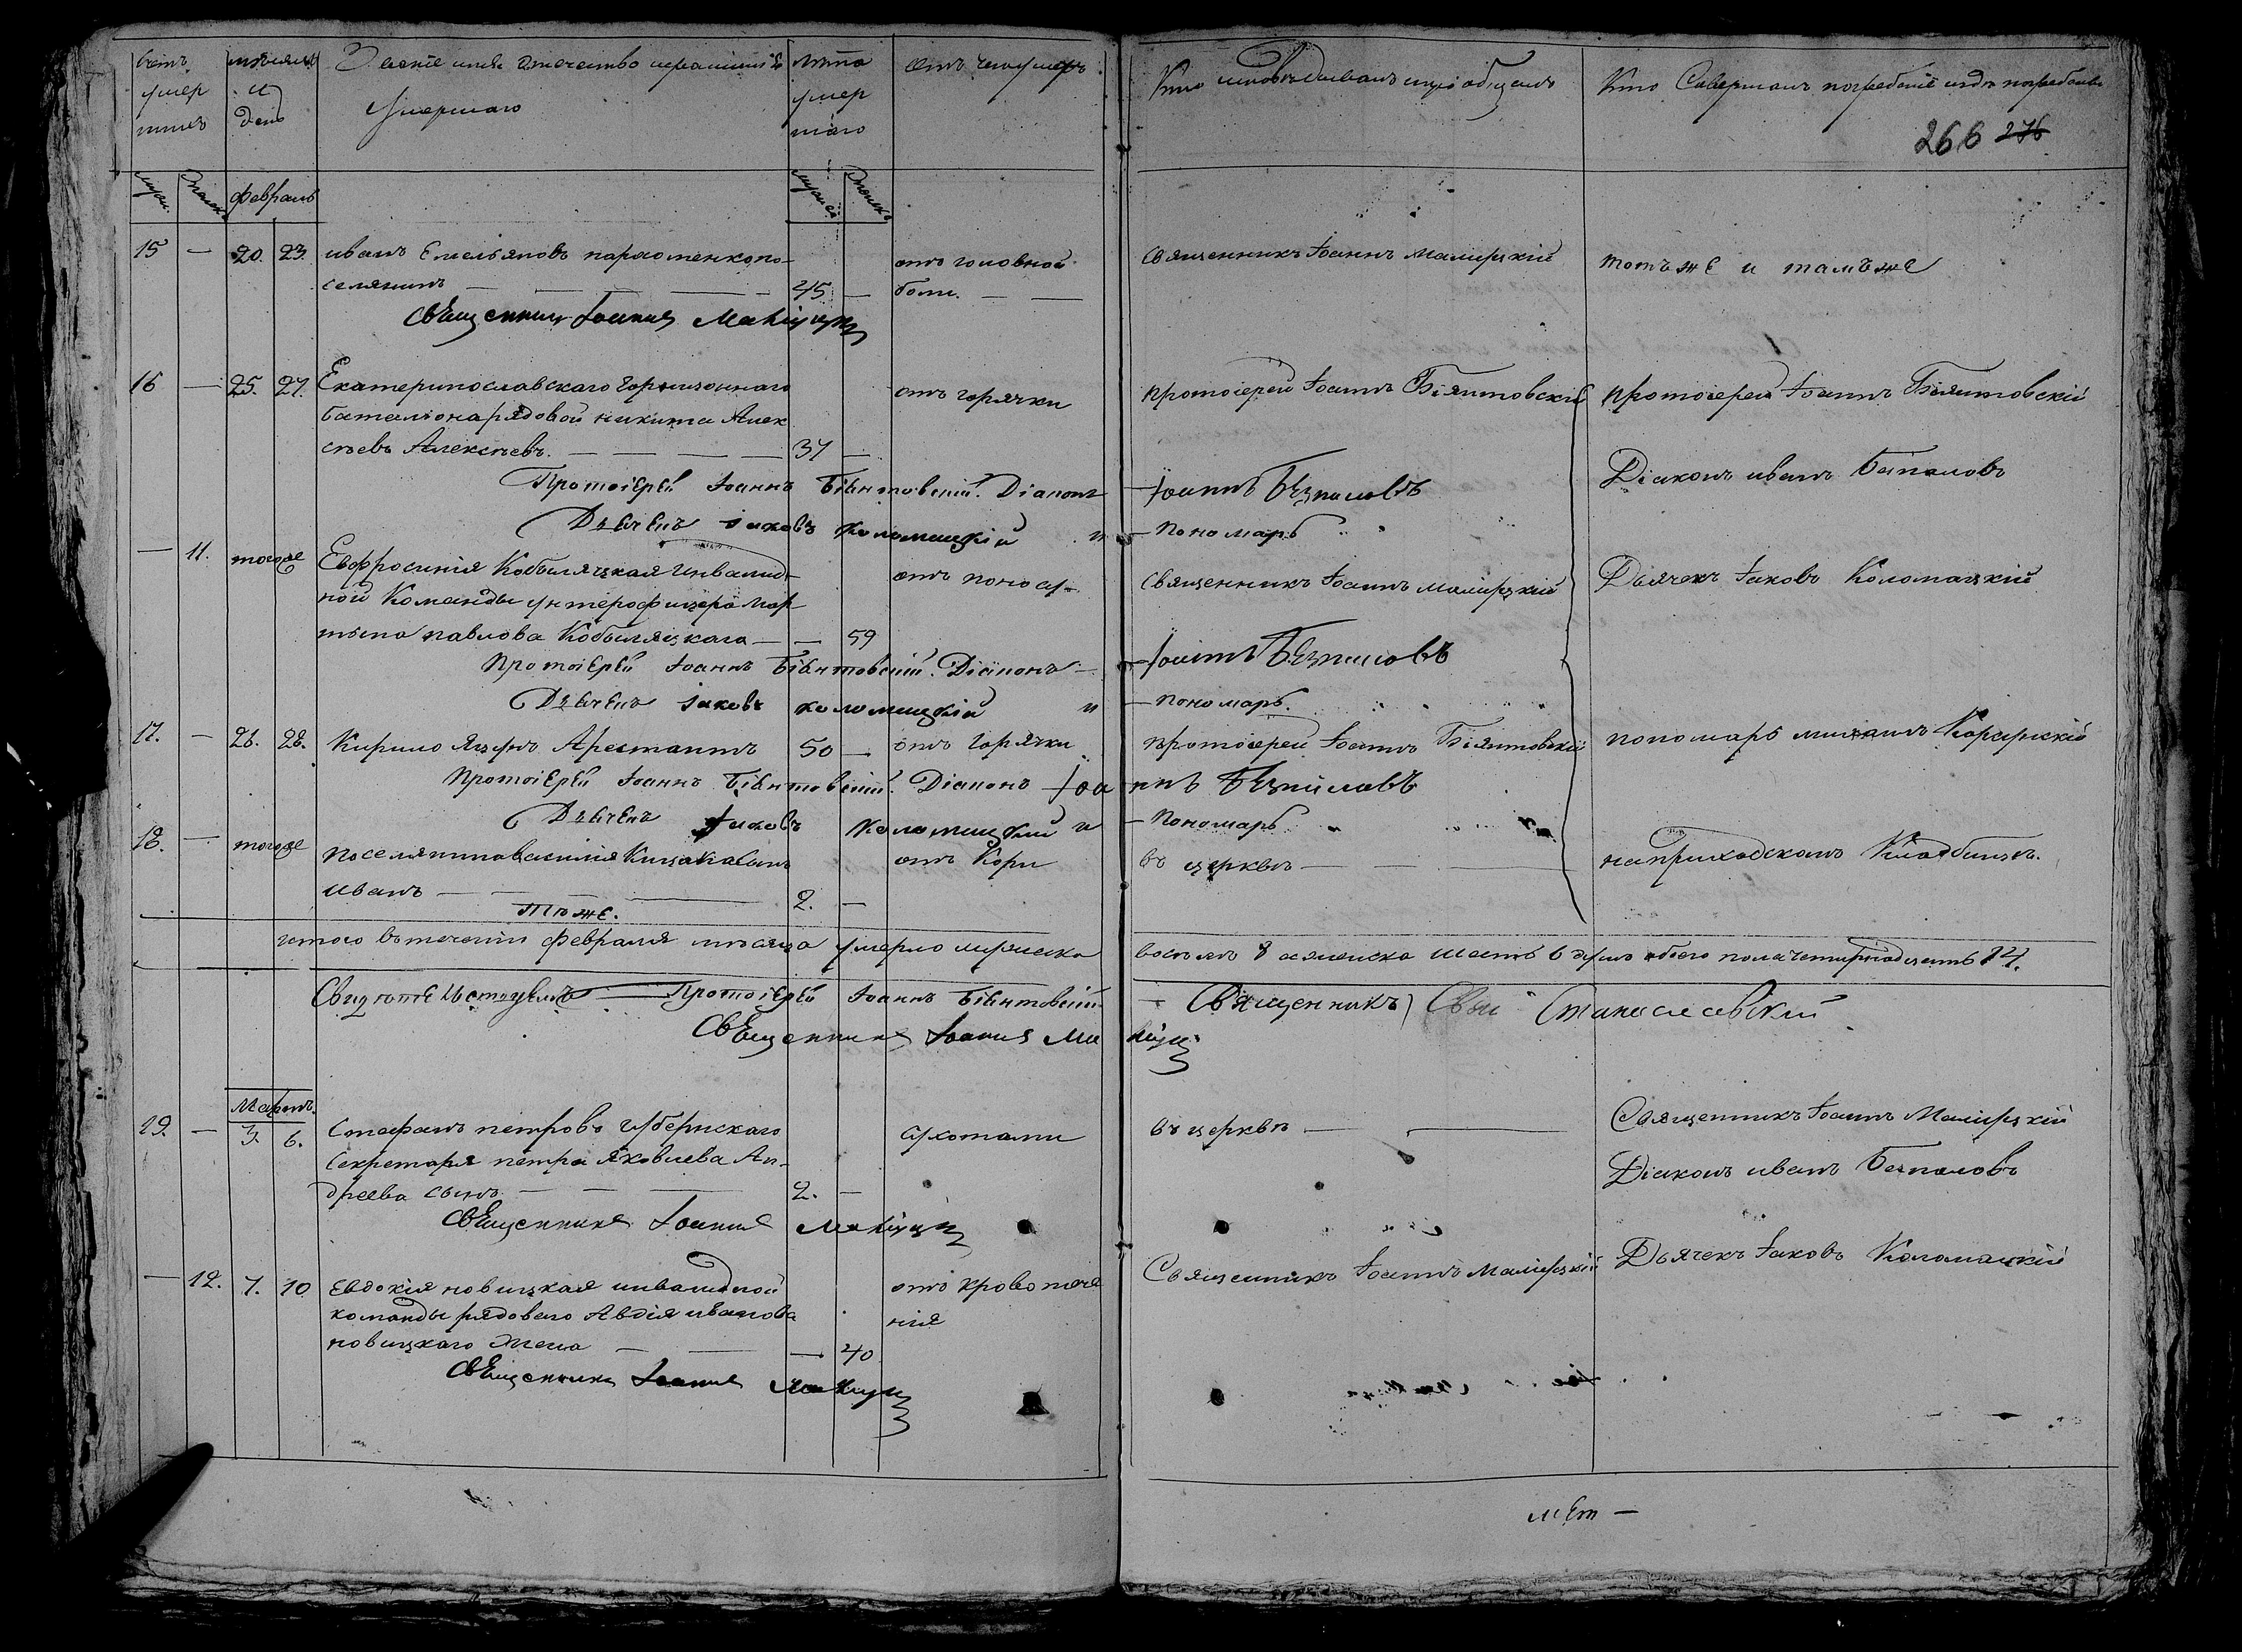 счетъ умершихъ
мѣсяцъ и день
Званіе имя отчество и фамилія умершаго
лѣта умершаго
отъ чего умеръ
Кто исповѣдывалъ и пріобщалъ
Кто Совершалъ погребеніе и гдѣ погребены
266 276
муж. женск. февраль муж. женск.
15 — 20. 23. иванъ Емельяновъ пархоменко по-
селянинъ — 45 —
отъ головной
боли. — —
священникъ Іоаннъ
тотъ же и тамъ же
Священникъ Іоаннъ
16 — 25. 27. Екатеринославскаго гарнизоннаго
баталіона рядовой никита Алек
сѣевъ Алексѣевъ. — 37 —
отъ горячки
протоіерей Іоаннъ Біянтовскій
протоіерей Іоаннъ Біянтовскій
Діаконъ иванъ Безпаловъ
Протоіерей Іоаннъ Біянтовскій. Діаконъ Іоаннъ Безпаловъ
Дьячекъ Іаковъ Коломацкій и пономарь
— 11. тогоже Евфросинія Кобыляцкая инвалид-
ной Команды унтерофицера мар
тына павлова Кобыляцкаго — — 59
отъ поносу —
священникъ Іоаннъ
Дьячекъ Іаковъ Коломацкій
Протоіерей Іоаннъ Біянтовскій. Діаконъ — Іоаннъ Безпаловъ
Дьячекъ Іаковъ коломацкій и — пономарь.
17. — 26. 28. Кирило Арестантъ 50 —
отъ горячки
протоіерей Іоаннъ Біянтовскій
пономарь
Протоіерей Іоаннъ Біянтовскій. Діаконъ Іоаннъ Безпаловъ
Дьячекъ Іаковъ Коломацкій и — пономарь
18. — тогоже поселянина василія сынъ
иванъ — 2. —
отъ Кори
въ церквѣ —
на Приходскомъ Кладбищѣ.
Тѣ же.
итого въ теченіи февраля мѣсяца умерло мужеска
восемь 8 а женска шесть 6 душъ обоего пола четырнадцать 14.
Протоіерей Іоаннъ Біянтовскій
Священникъ
Священникъ Іоаннъ
Мартъ.
19. — 3. 6. Стефанъ петровъ губернскаго
секретаря петра Яковлева Ан-
дреева сынъ — 2. —
сухотами
въ церквѣ —
Священникъ Іоаннъ
Діаконъ иванъ Безпаловъ
Священникъ Іоаннъ
— 12. 7. 10 Евдокія новицкая инвалидной
команды рядоваго Авдія иванова
новицкаго жена — — 40
отъ кровотече
нія
Священникъ Іоаннъ
Дьячекъ Іаковъ Коломацкій
Священникъ Іоаннъ